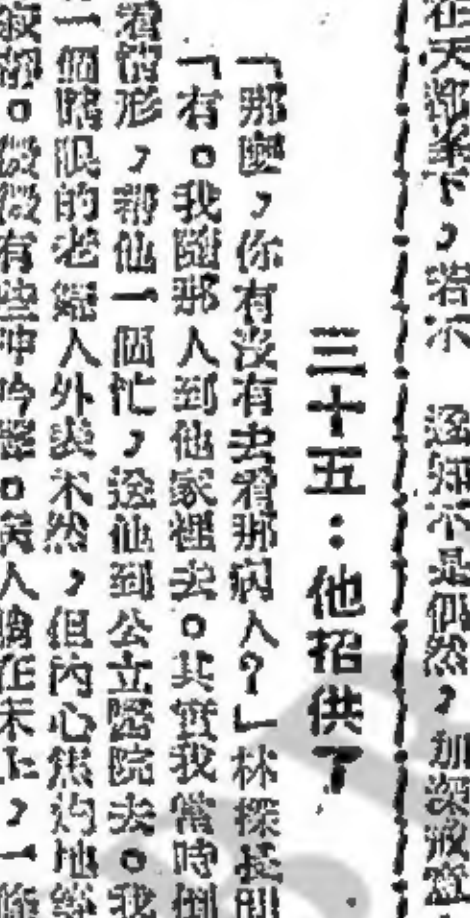 在天都峯下，若不
逐知不是偶然，加深戒
三十五：他招供了
「那麼，你有沒有去看那病人？」林探長問
「有。我隨那人到他家裡去。其實我當時倒
看情形，幫他一個忙，送他到公立醫院去。我
一個瞎眼的老婦人外表木然，但內心焦灼地等
寂靜。微微有些呻吟聲。病人躺在床上，一條